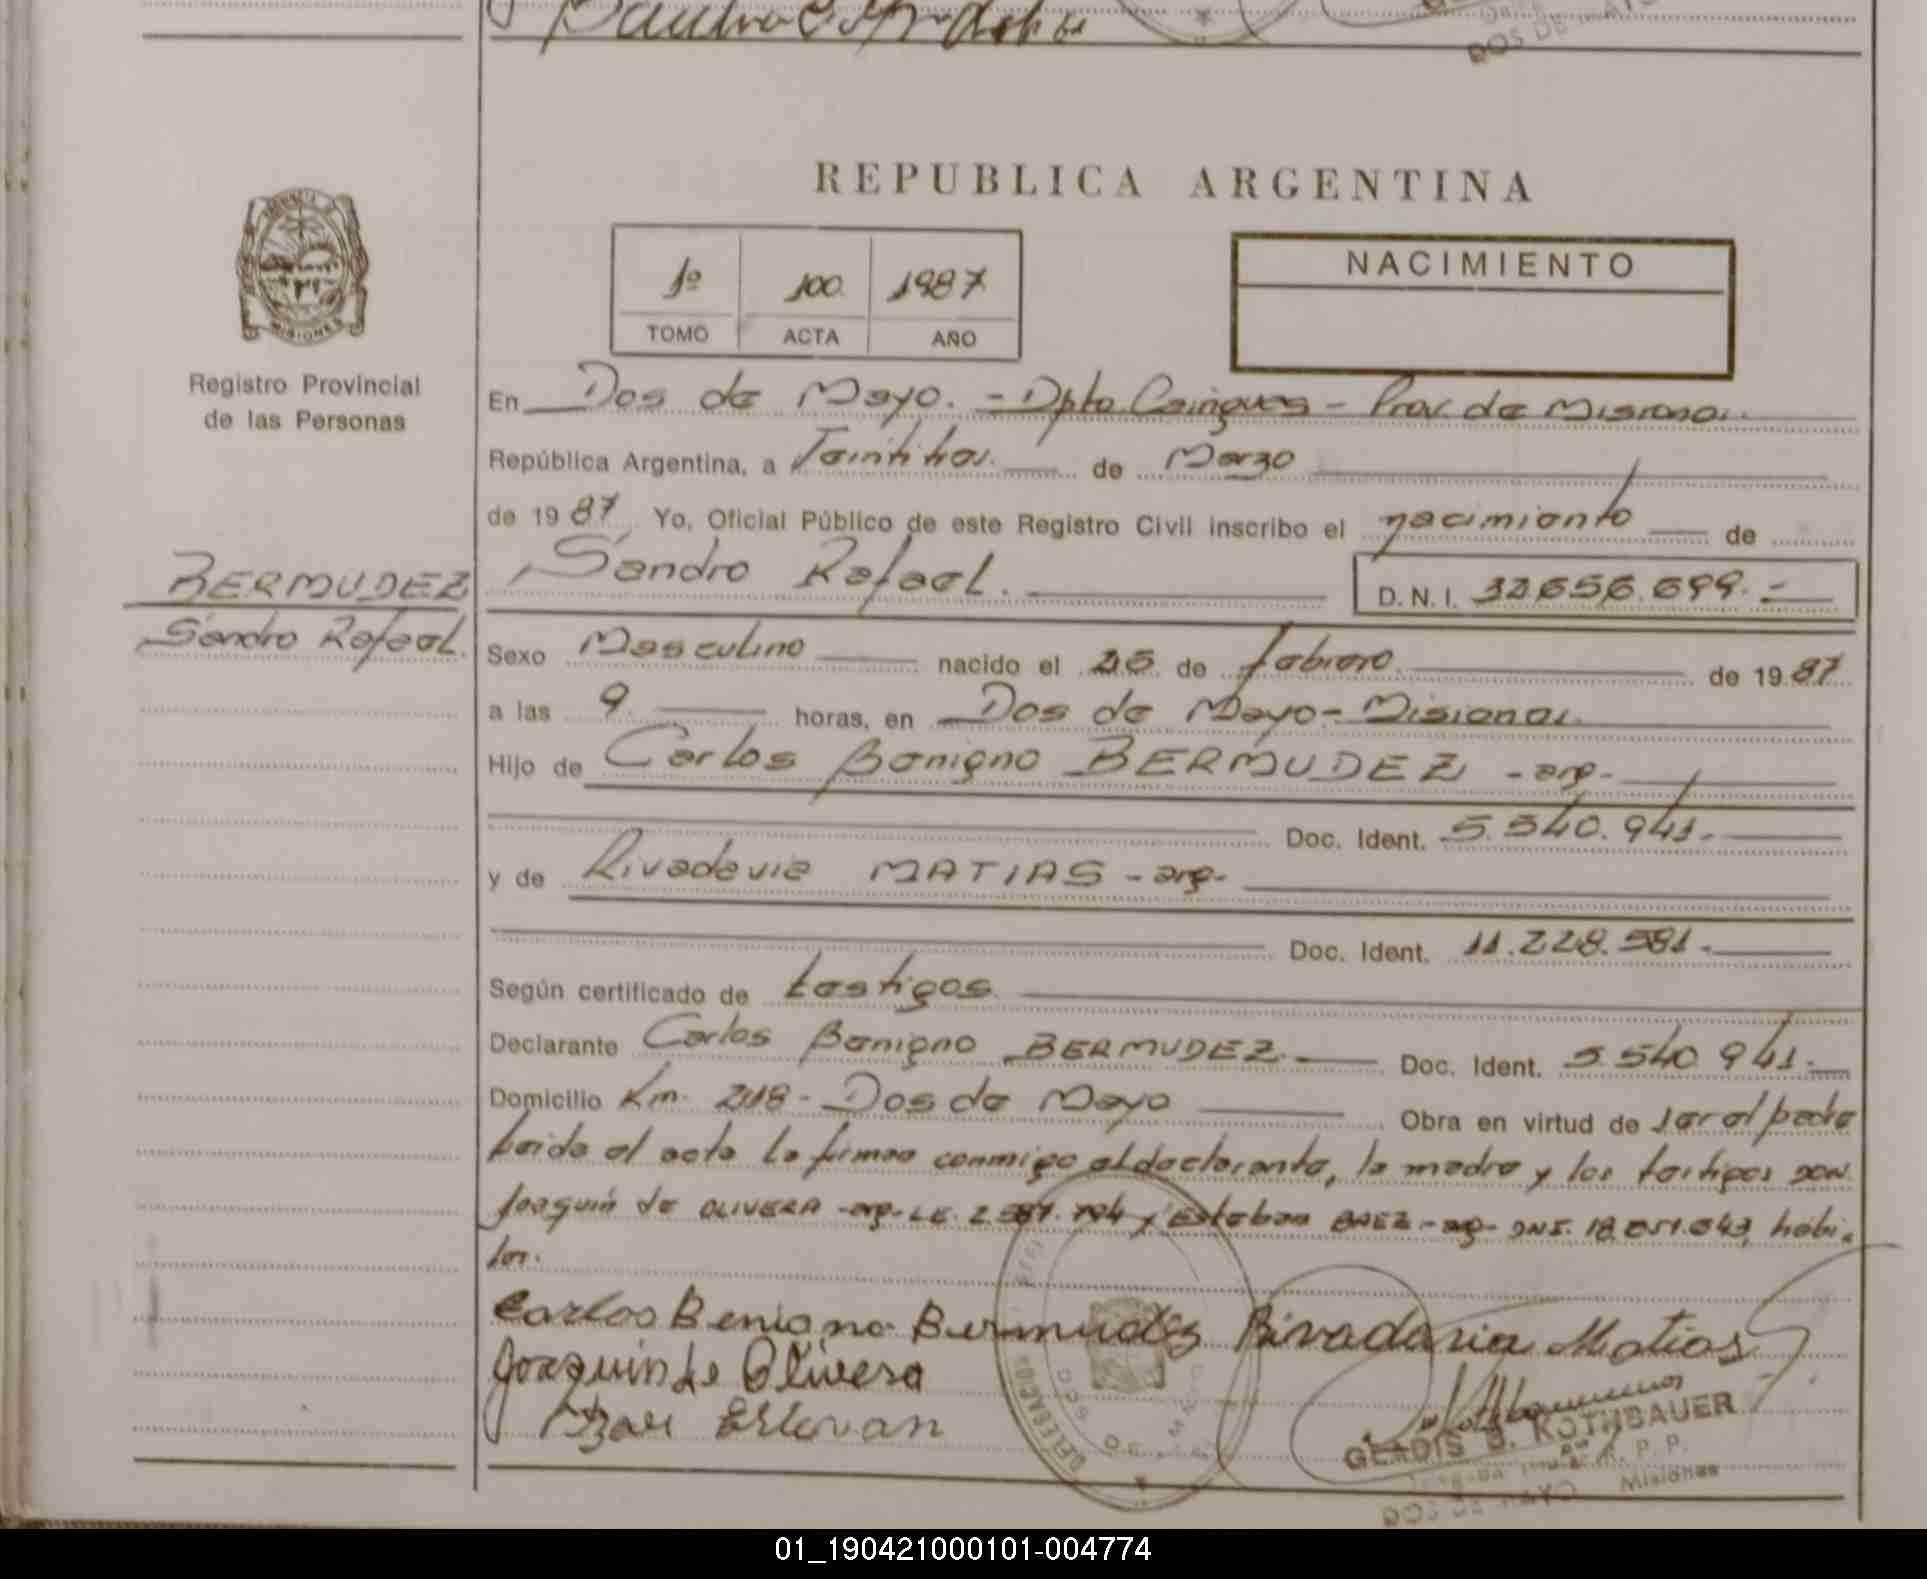 REPUBLICA ARGENTINA
1º 100 1987
TOMO ACTA AÑO
NACIMIENTO
MISIONES
Registro Provincial
de las Personas
En Dos de Mayo. - Dpto Cainguas - Prov. de Misiones.
República Argentina, a Veintitres de Marzo
de 1987 Yo, Oficial Público de este Registro Civil inscribo el nacimiento de
BERMUDEZ
Sandro Rafael.
Sandro Rafael. D.N.I. 32.656.699.-
Sexo Masculino nacido el 25 de febrero de 1987
a las 9 horas, en Dos de Mayo - Misiones.
Hijo de Carlos Benigno BERMUDEZ - arg -
Doc. Ident. 5.540.941.-
y de Rivadavia MATIAS - arg -
Doc. Ident. 11.228.581.-
Según certificado de testigos
Declarante Carlos Benigno BERMUDEZ Doc. Ident. 5.540.941.-
Domicilio Km. 248 - Dos de Mayo Obra en virtud de ser el padre
Leida el acta la firman conmigo el declarante, la madre y los testigos son
Joaquín de OLIVERA - arg - LE. 2.587.794 y Esteban BAEZ - arg - DNI. 18.051.043, hábi-
les.
Carlos Benigno Bermudez Rivadavia Matias
Joaquin de Olivera
Esteban
GLADIS B. KOTHBAUER
DOS DE MAYO Misiones
01_190421000101-004774